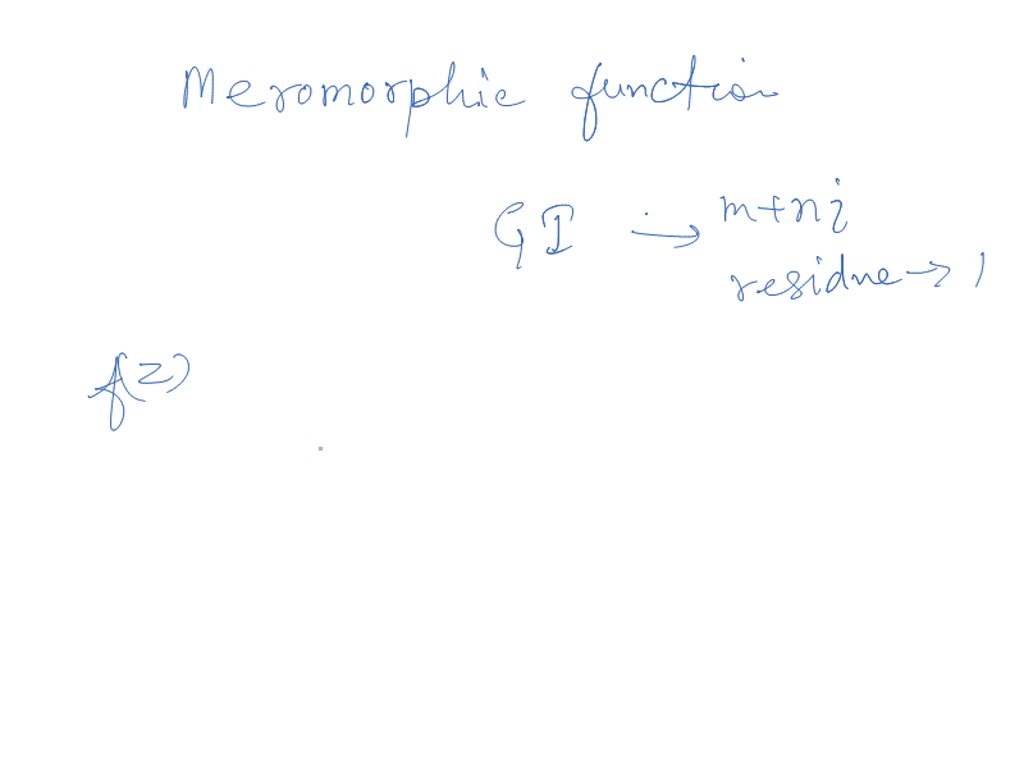 Meromorphic function
GI → m+ni
residue → 1
f(z)